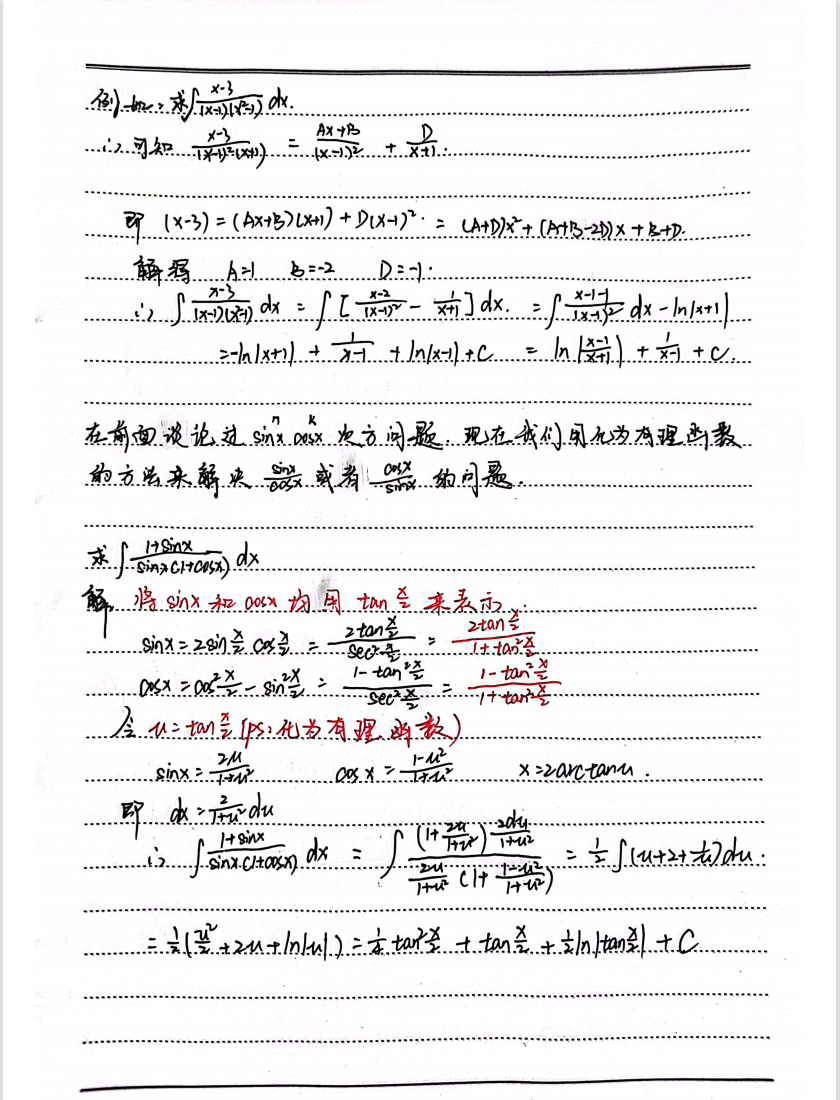 例如：求∫(x-3)/((x-1)(x²-1)) dx.
∴ 可知 (x-3)/((x-1)²(x+1)) = (Ax+B)/(x-1)² + D/(x+1).
即 (x-3) = (Ax+B)(x+1) + D(x-1)². = (A+D)x² + (A+B-2D)x + B+D.
解得 A=1 B=-2 D=-1.
∴ ∫(x-3)/((x-1)(x²-1)) dx = ∫[(x-2)/(x-1)² - 1/(x+1)] dx. = ∫(x-1-1)/(x-1)² dx - ln|x+1|
=-ln|x+1| + 1/(x-1) + ln|x-1| + C = ln|(x-1)/(x+1)| + 1/(x-1) + C.
在前面谈论过 sinⁿx cosᵏx 次方问题. 现在我们用化为有理函数
的方法来解决 sinx/cosx 或者 cosx/sinx 的问题.
求 ∫(1+sinx)/(sinx(1+cosx)) dx
解. 将 sinx 和 cosx 均用 tan x/2 来表示.
sinx = 2sin x/2 cos x/2 = (2tan x/2)/(sec² x/2) = (2tan x/2)/(1+tan² x/2)
cosx = cos² x/2 - sin² x/2 = (1-tan² x/2)/(sec² x/2) = (1-tan² x/2)/(1+tan² x/2)
令 u=tan x/2 (ps: 化为有理函数)
sinx = 2u/(1+u²) cosx = (1-u²)/(1+u²) x=2arctanu.
即 dx = 2/(1+u²) du
∴ ∫(1+sinx)/(sinx(1+cosx)) dx = ∫((1+2u/(1+u²)) 2du/(1+u²))/(2u/(1+u²) (1+(1-u²)/(1+u²))) = 1/2 ∫(u+2+1/u)du.
= 1/2(u²/2 + 2u + ln|u|) = 1/4 tan² x/2 + tan x/2 + 1/2 ln|tan x/2| + C